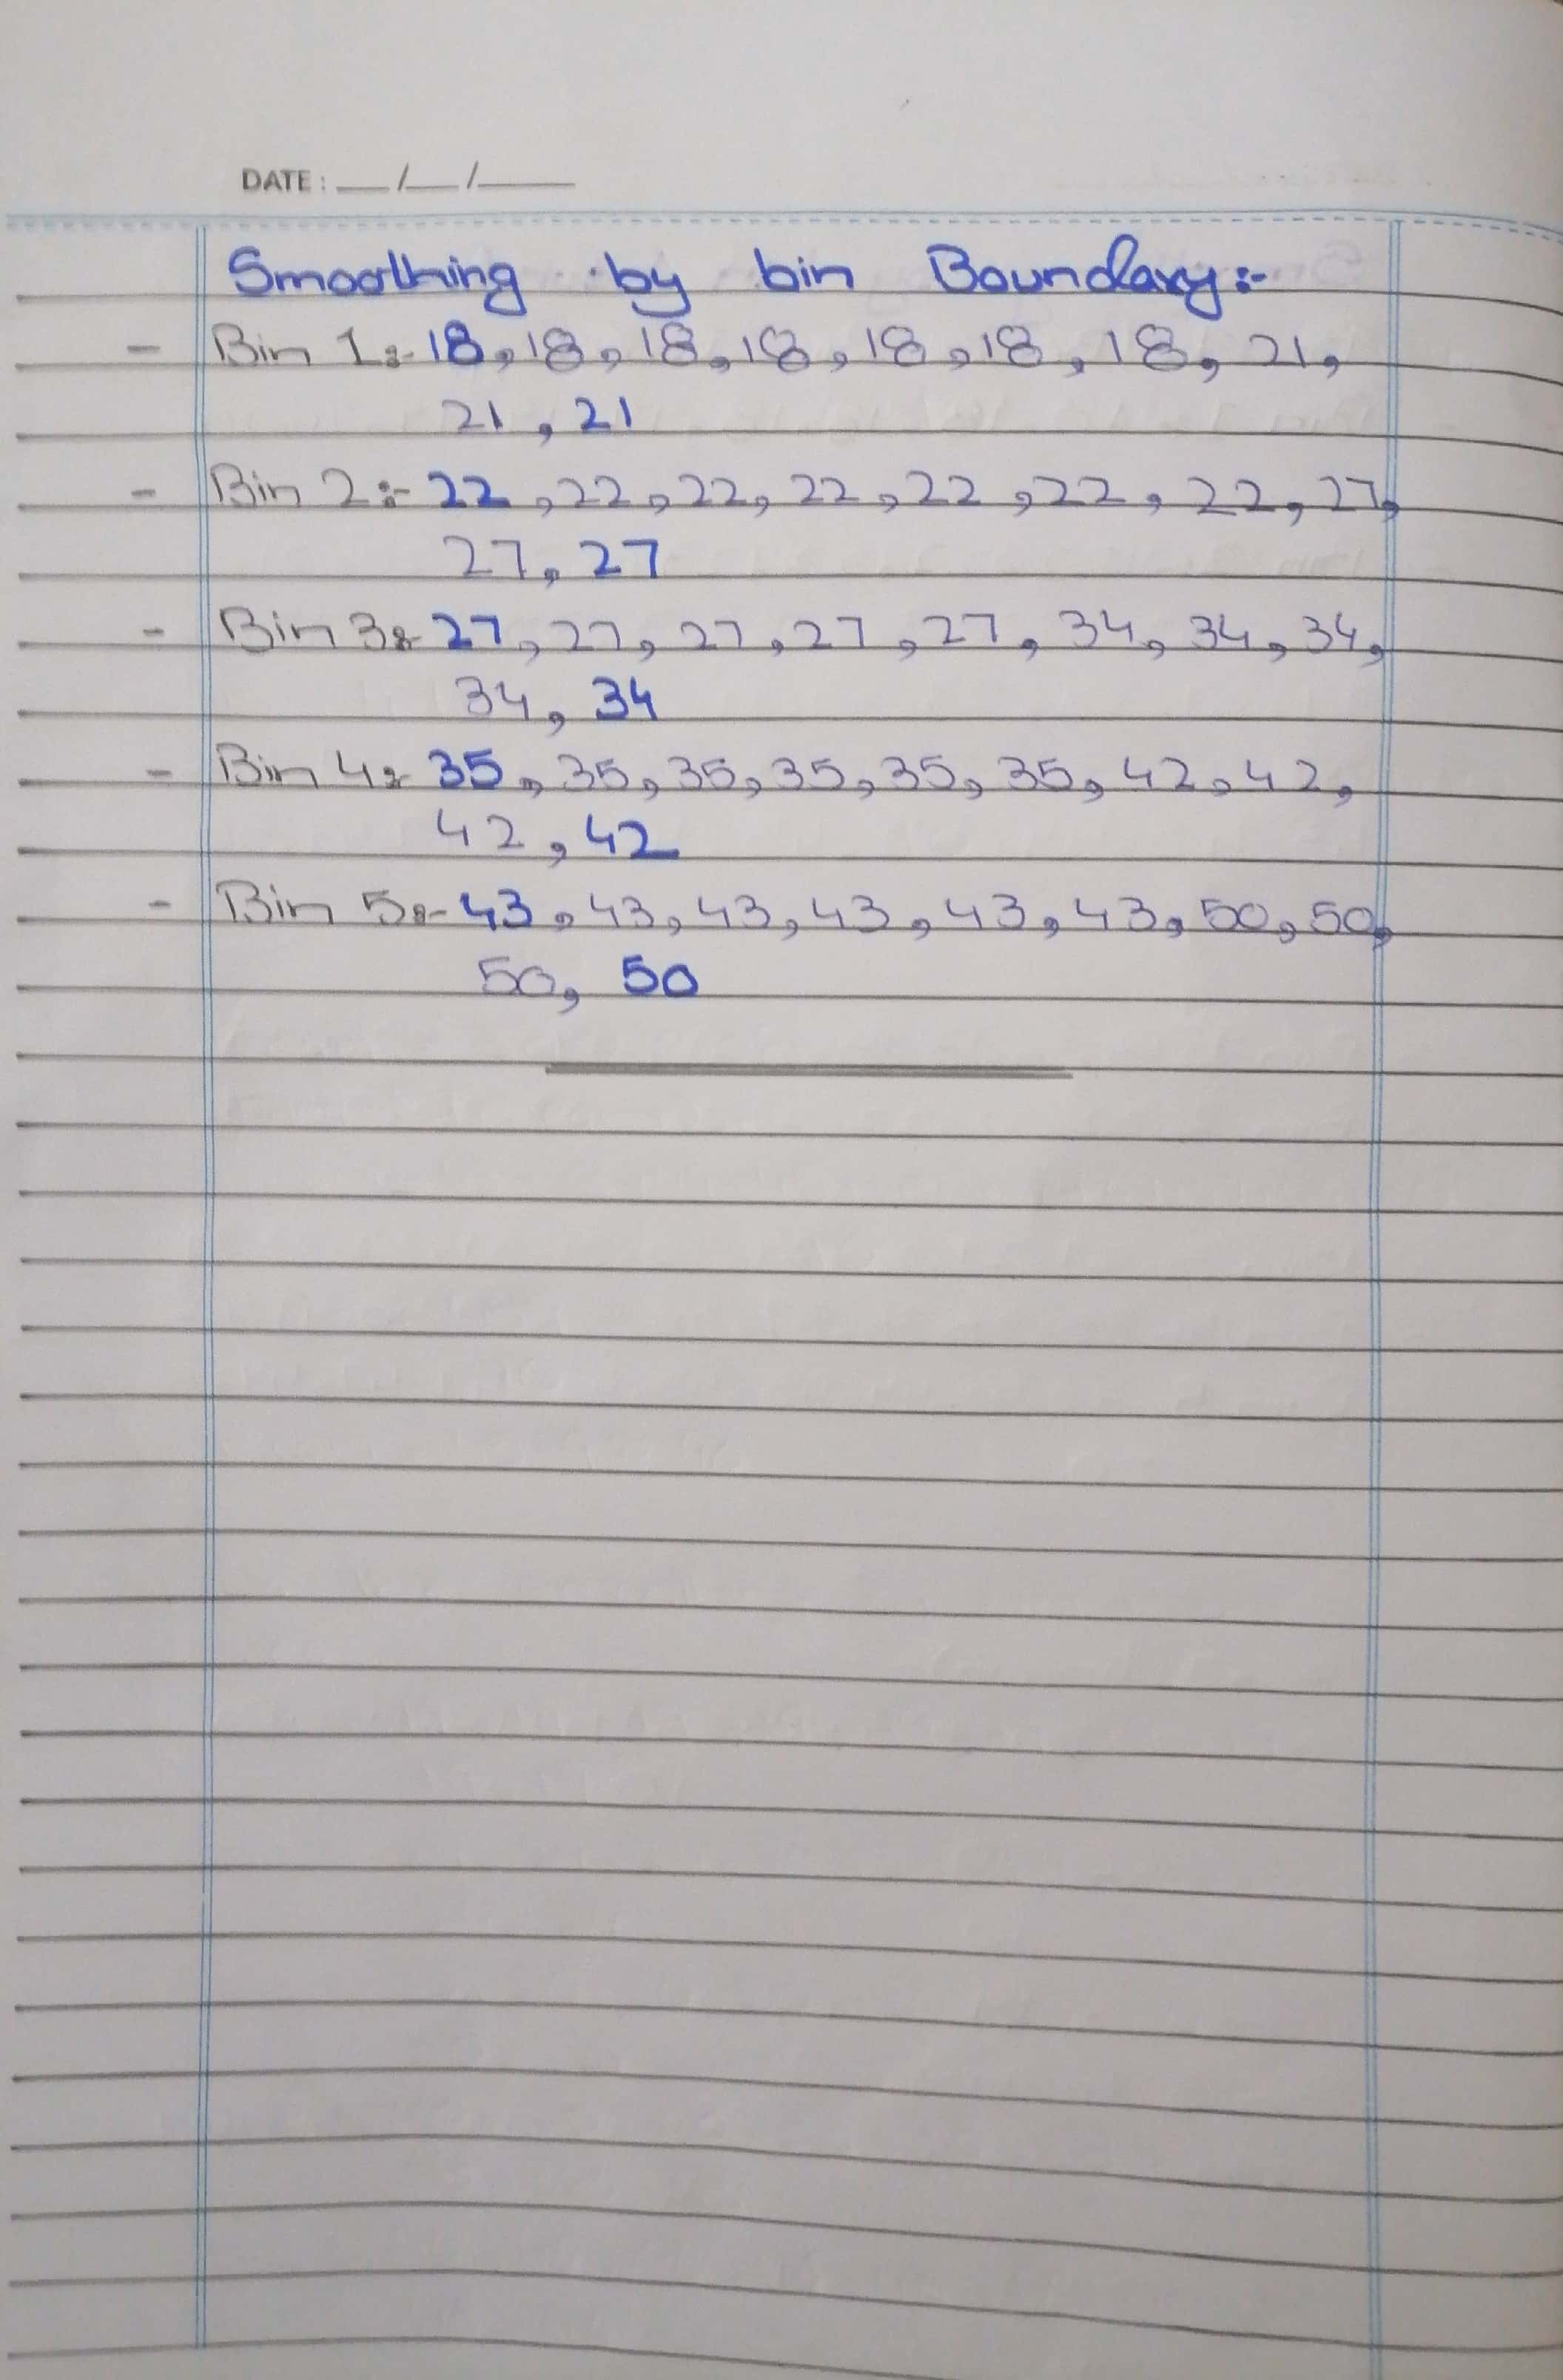 DATE: __/__/____
Smoothing by bin Boundary:-
- Bin 1:- 18, 18, 18, 18, 18, 18, 18, 21,
21, 21
- Bin 2:- 22, 22, 22, 22, 22, 22, 22, 27,
27, 27
- Bin 3:- 27, 27, 27, 27, 27, 34, 34, 34,
34, 34
- Bin 4:- 35, 35, 35, 35, 35, 35, 42, 42,
42, 42
- Bin 5:- 43, 43, 43, 43, 43, 43, 50, 50,
50, 50